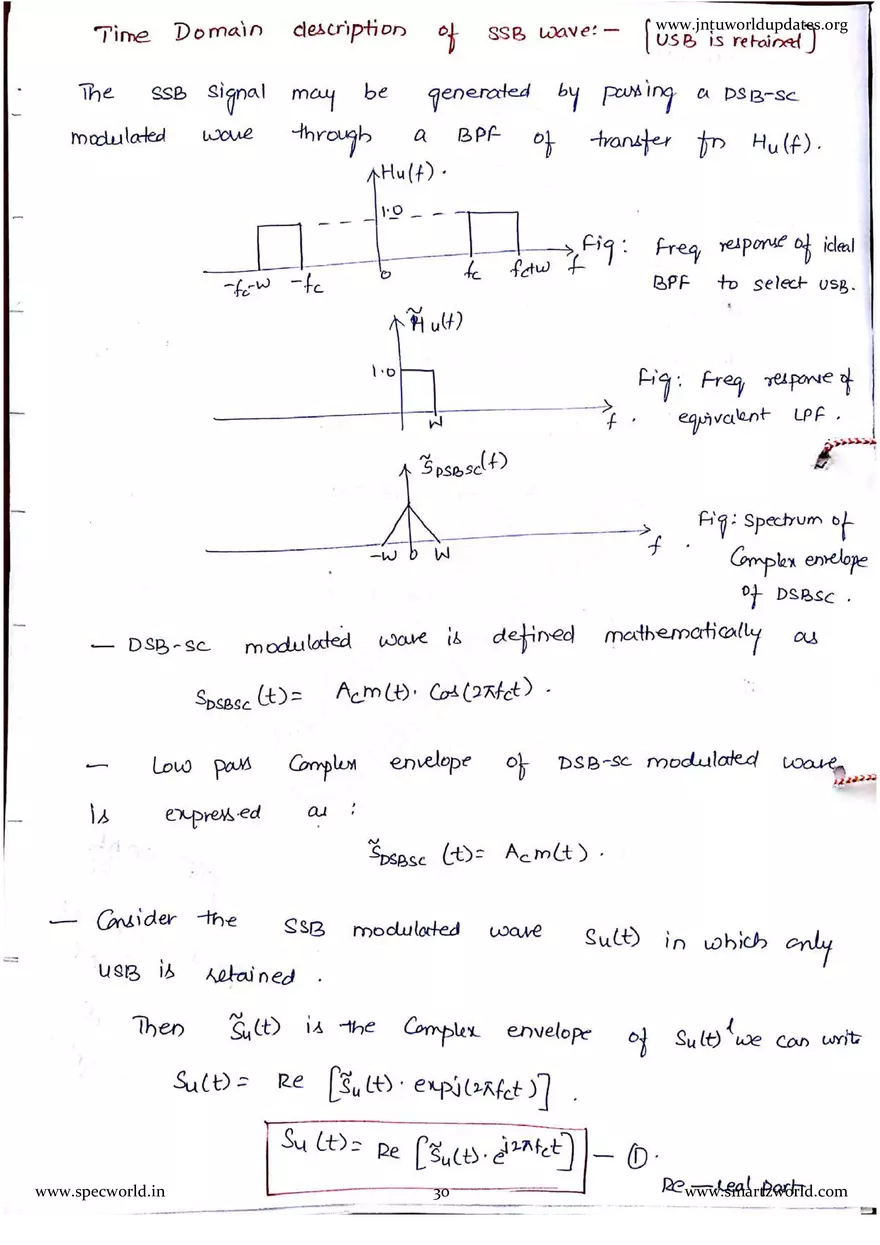 www.jntuworldupdates.org
Time Domain description of SSB wave:- [USB is retained]
The SSB signal may be generated by passing a DSB-SC
modulated wave through a BPF of transfer fn Hu(f).
Hu(f).
1.0
-fc-w -fc 0 fc fc+w f
Fig: Freq response of ideal
BPF to select USB.
H̃u(f)
1.0
w f.
Fig: Freq response of
equivalent LPF.
S̃DSBSC(f)
-w 0 w f.
Fig: Spectrum of
Complex envelope
of DSBSC.
- DSB-SC modulated wave is defined mathematically as
SDSBSC(t) = Acm(t). Cos(2πfct).
- Low pass Complex envelope of DSB-SC modulated wave
is expressed as :
S̃DSBSC (t) = Acm(t).
- Consider the SSB modulated wave Su(t) in which only
USB is retained.
Then S̃u(t) is the Complex envelope of Su(t) & we can write
Su(t) = Re [S̃u(t). expj(2πfct)].
Su(t) = Re [S̃u(t). e^j2πfct] - ①.
Re - real part
www.specworld.in 30 www.smartzworld.com